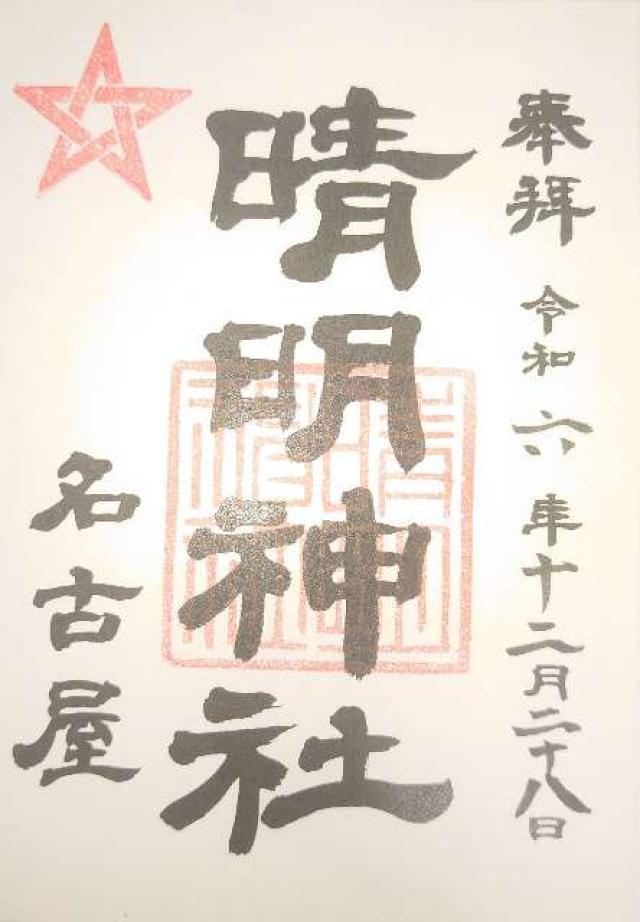 奉拝 令和六年十二月二十八日
晴明神社
名古屋
晴明
神社